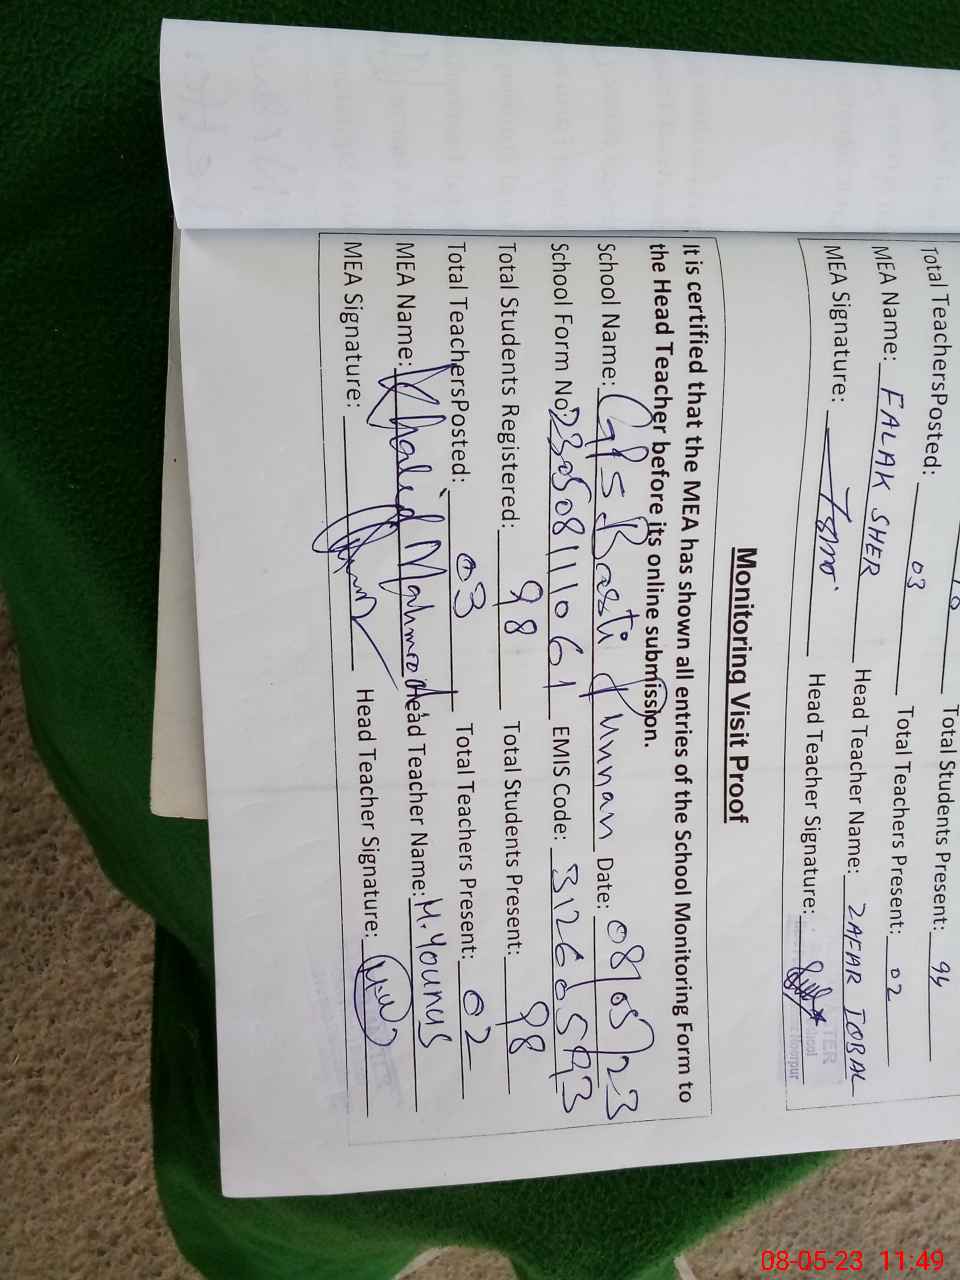 Total TeachersPosted: 03 Total Students Present: 94
MEA Name: FALAK SHER Total Teachers Present: 02
MEA Signature: Head Teacher Name: ZAFAR IQBAL
Head Teacher Signature:
Monitoring Visit Proof
It is certified that the MEA has shown all entries of the School Monitoring Form to
the Head Teacher before its online submission.
School Name: GPS Basti Jumman Date: 08/05/23
School Form No: 23050811061 EMIS Code: 31260593
Total Students Registered: 98 Total Students Present: 98
Total TeachersPosted: 03 Total Teachers Present: 02
MEA Name: Khalid Mahmood Head Teacher Name: M. Younus
MEA Signature: Head Teacher Signature:
08-05-23 11:49